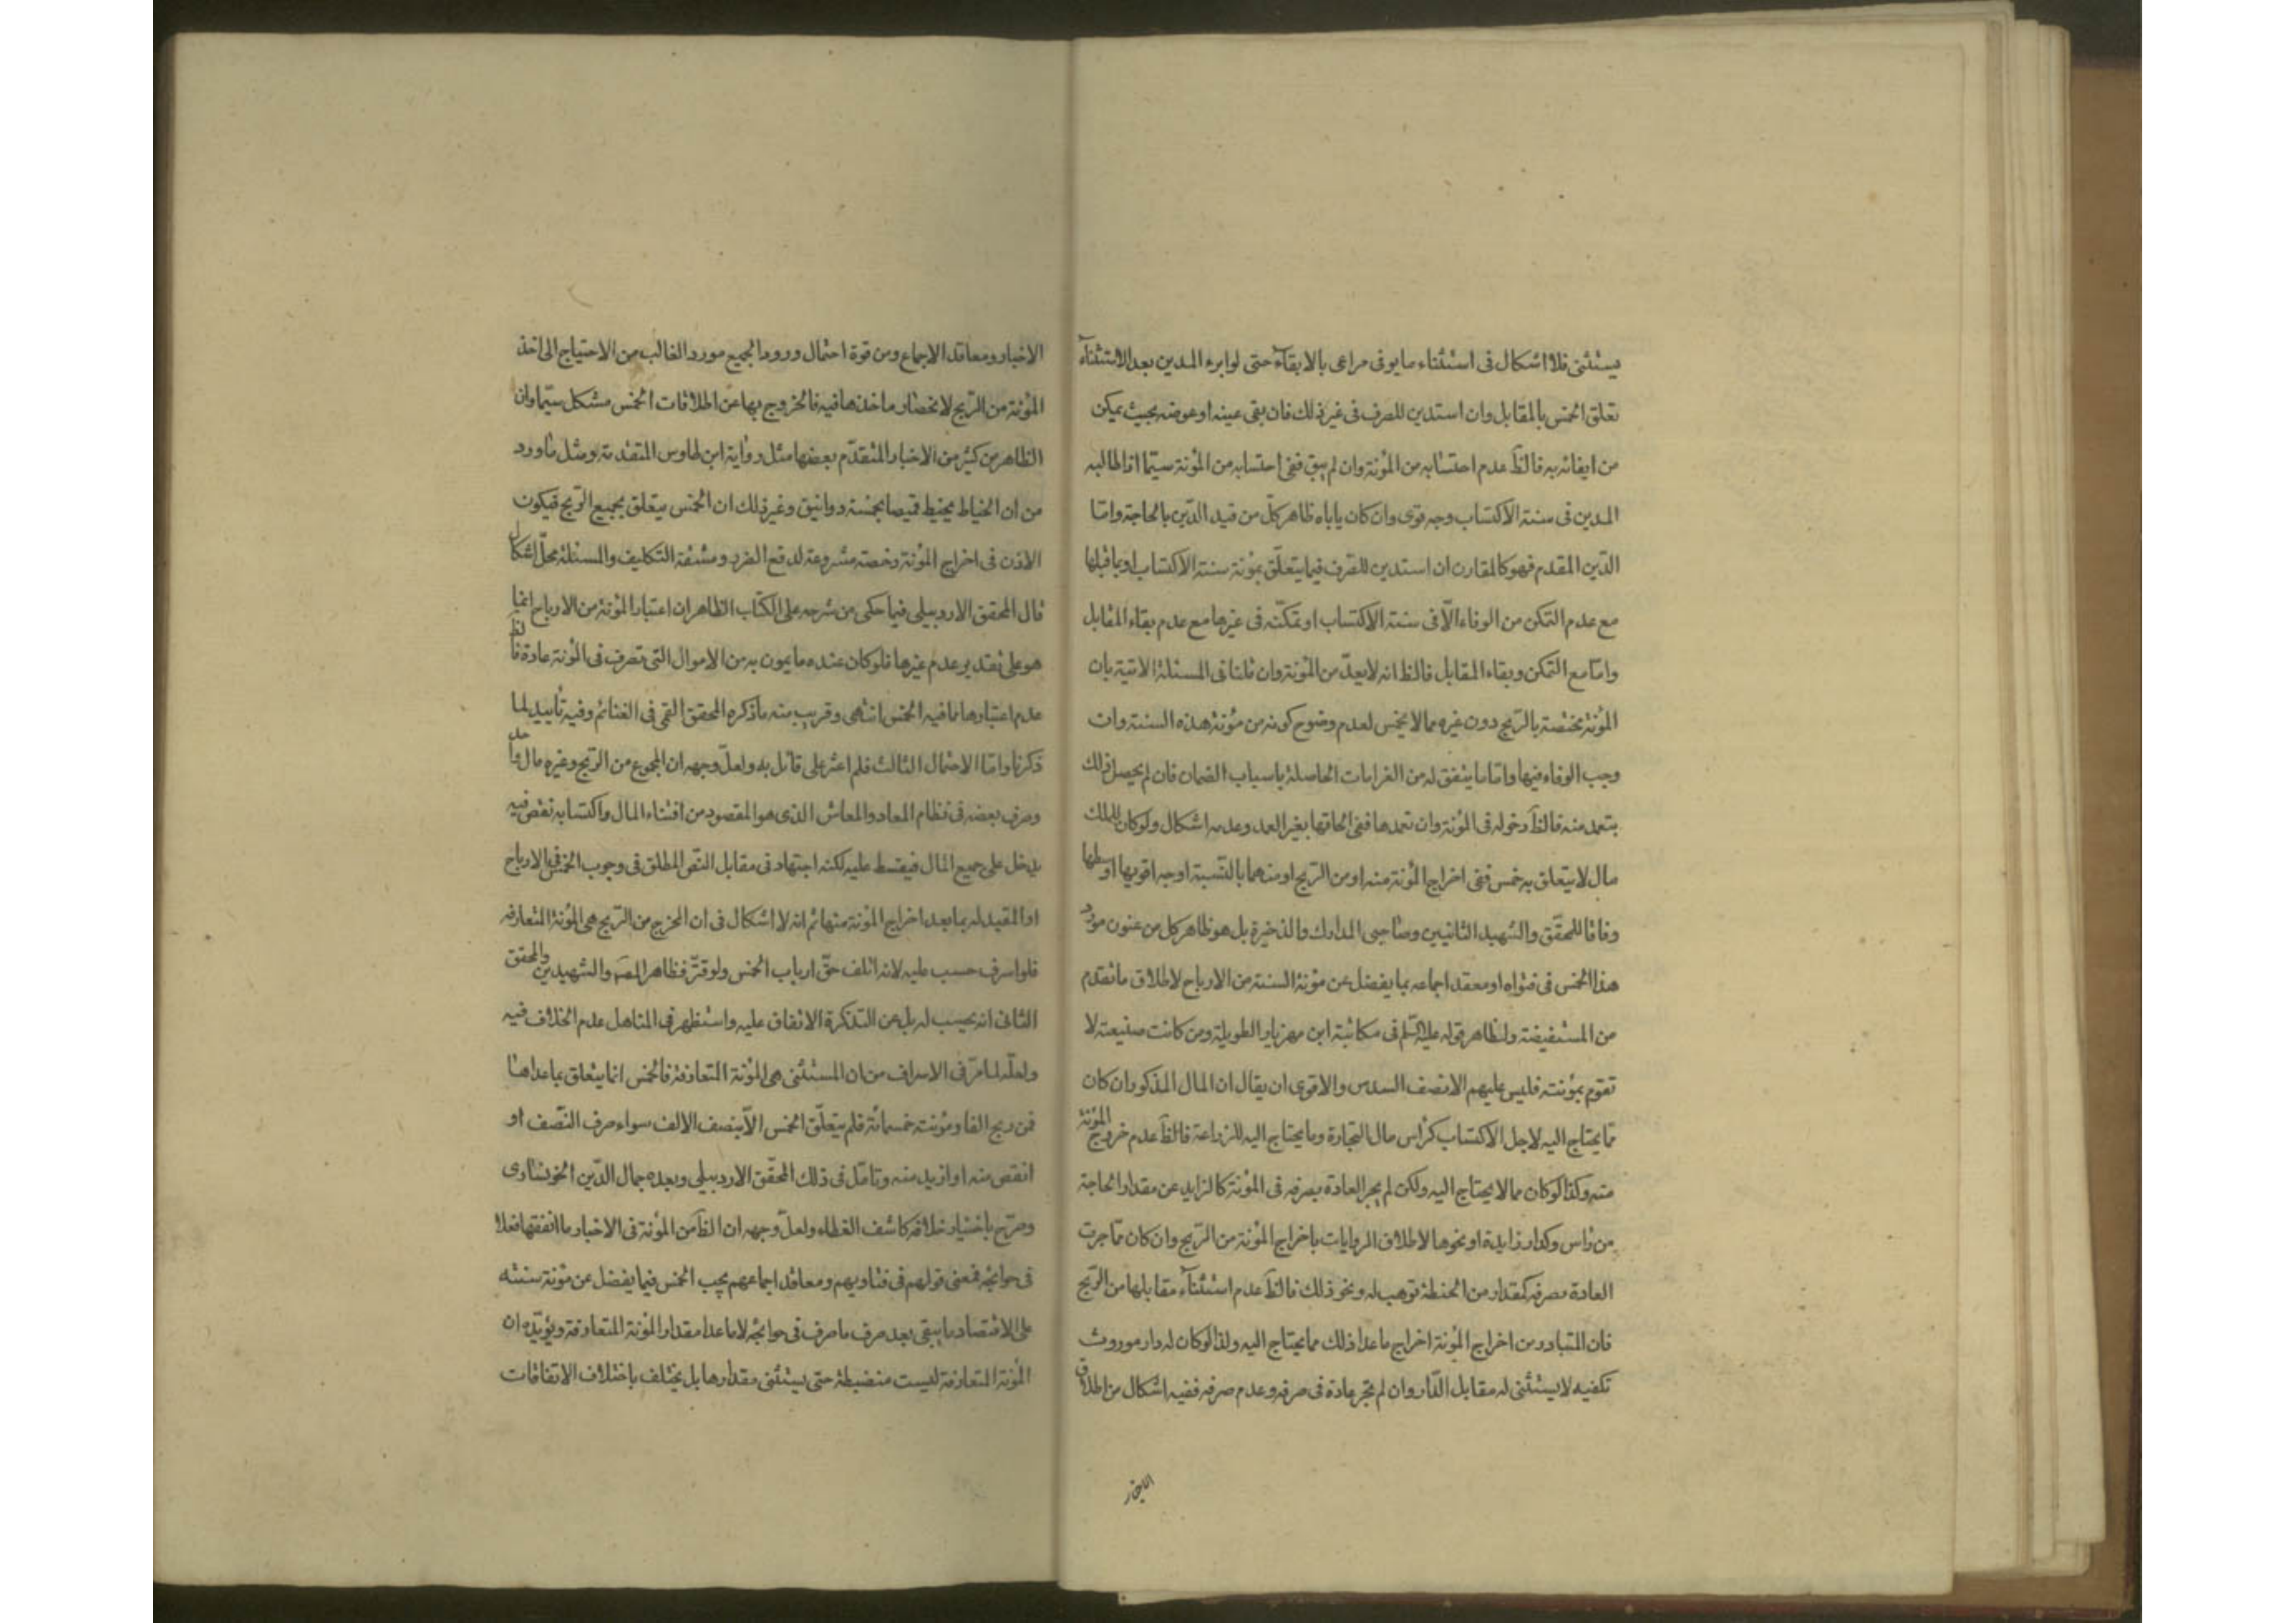 يستثنى فلا اشكال فى استثناء ما يوفى مراعى بالابقاء حتى لو ابره المدين بعد الاستثناء
تعلق الخمس بالمقابل وان استدين للصرف فى غير ذلك فان بقى عينه او عوضه بحيث يمكن
من ايفائه به فالظ عدم احتسابه من المؤنة وان لم يبق ففى احتسابه من المؤنة سيّما اذا طالبه
المدين فى سنة الاكتساب وجه قوى وان كان ياباه ظاهر كلّ من قيد الدّين بالحاجة وامّا
الدّين المقدم فهو كالمقارن ان استدين للصرف فيما يتعلّق بمؤنة سنة الاكتساب او بما قبلها
مع عدم التمكن من الوفاء الّا فى سنة الاكتساب او تمكّنه فى غيرها مع عدم بقاء المقابل
وامّا مع التمكن وبقاء المقابل فالظ انه لا يعدّ من المؤنة وان قلنا فى المسئلة الاتية بان
المؤنة مختصّة بالرّبح دون غيره مما لا يخمس لعدم وضوح كونه من مؤنة هذه السنة وان
وجب الوفاء فيها وامّا ما يتفق له من الغرامات الحاصلة باسباب الضمان فان لم يحصل ذلك
بتعمد منه فالظ دخوله فى المؤنة وان تعمدها ففى الحاقها بغير العمد وعدمه اشكال ولو كان للمالك
مال لا يتعلق به خمس ففى اخراج المؤنة منه او من الربح او منهما بالنّسبة اوجه اقويها اوسطها
وفاقا للمحقّق والشهيد الثانيين وصاحبى المدارك والذخيرة بل هو ظاهر كل من عنون مورد
هذا الخمس فى فتواه او معقد اجماعه بما يفضل عن مؤنة السنة من الارباح لاطلاق ما تقدم
من المستفيضة ولظاهر قوله عليه السّلم فى مكاتبة ابن مهزيار الطويلة ومن كانت ضيعته لا
تقوم بمؤنته فليس عليهم الا نصف السدس والاقوى ان يقال ان المال المذكور ان كان
ممّا يحتاج اليه لاجل الاكتساب كرأس مال التجارة وما يحتاج اليه للزراعة فالظ عدم خروج المؤنة
منه وكذا لو كان مما لا يحتاج اليه ولكن لم يجر العادة بصرفه فى المؤنة كالزايد عن مقدار الحاجة
من رأس وكدار زايدة او نحوها لاطلاق الروايات باخراج المؤنة من الرّبح وان كان ممّا جرت
العادة بصرفه كمقدار من الحنطة توهب له ونحو ذلك فالظ عدم استثناء مقابلها من الرّبح
فان المتبادر من اخراج المؤنة اخراج ما عدا ذلك مما يحتاج اليه ولذا لو كان له دار موروث
تكفيه لا يستثنى له مقابل الدّار وان لم تجر عادة فى صرفه وعدم صرفه ففيه اشكال من اطلاق
الاخبار
الاخبار ومعاقد الاجماع ومن قوة احتمال ورود الجميع مورد الغالب من الاحتياج الى اخذ
المؤنة من الرّبح لانحصار ماخذها فيه فالخروج بها عن اطلاقات الخمس مشكل سيّما وان
الظاهر من كثير من الاخبار المتقدّم بعضها مثل رواية ابن طاوس المتقدمة ومثل ما ورد
من ان الخياط يخيط قميصا بخمسة دوانيق وغير ذلك ان الخمس يتعلق بجميع الرّبح فيكون
الاذن فى اخراج المؤنة رخصة مشروعة لدفع الضرر ومشقة التكليف والمسئلة محلّ اشكال
قال المحقق الاردبيلى فيما حكى من شرحه على الكتاب الظاهر ان اعتبار المؤنة من الارباح انما
هو على تقدير عدم غيرها فلو كان عنده ما يمون به من الاموال التى تصرف فى المؤنة عادة فالظ
عدم اعتبارها فيما فيه الخمس انتهى وقريب منه ما ذكره المحقق القمى فى الغنائم وفيه تأييد لما
ذكرنا وامّا الاحتمال الثالث فلم اعثر على قائل به ولعلّ وجهه ان المجموع من الرّبح وغيره مال واحد
وصرف بعضه فى نظام المعاد والمعاش الذى هو المقصود من اقتناء المال واكتسابه نقص فيه
يدخل على جميع المال فيقسط عليه لكنه اجتهاد فى مقابل النّص المطلق فى وجوب الخمس فى الارباح
او المقيد له بما بعد اخراج المؤنة منها ثم انه لا اشكال فى ان المخرج من الرّبح هى المؤنة المتعارفه
فلو اسرف حسب عليه لانه اتلف حقّ ارباب الخمس ولو قتّر فظاهر المصَ والشهيدين والمحقق
الثانى انه يحسب له بل عن التذكرة الاتفاق عليه واستظهر فى المناهل عدم الخلاف فيه
ولعلّه لما مرّ فى الاسراف من ان المستثنى هى المؤنة المتعارفة فالخمس انما يتعلق بما عداها
فمن ربح الفا ومؤنته خمسمائة فلم يتعلّق الخمس الّا بنصف الالف سواء صرف النّصف او
انقص منه او ازيد منه وتامّل فى ذلك المحقّق الاردبيلى وبعده جمال الدّين الخونسارى
وصرّح باختيار خلافه كاشف الغطاء ولعلّ وجهه ان الظ من المؤنة فى الاخبار ما انفقها فعلا
فى حوائجه فمعنى قولهم فى فتاويهم ومعاقد اجماعهم يجب الخمس فيما يفضل عن مؤنة سنته
على الاقتصاد ما يبقى بعد صرف ما صرف فى حوائجه لا ما عدا مقدار المؤنة المتعارفة ويؤيّده ان
المؤنة المتعارفة ليست منضبطة حتى يستثنى مقدارها بل يختلف باختلاف الاتفاقات